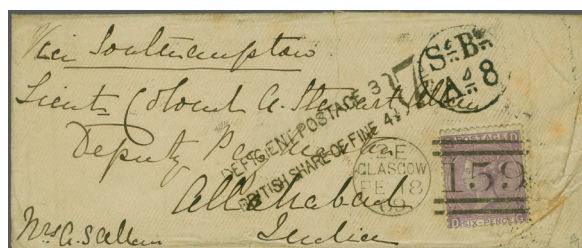 Via Southampton
Lieut Colonel A. Stewart Allan
Deputy Paymaster
Allahabad
India
Mrs A. S. Allan
DEFICIENT POSTAGE 3
BRITISH SHARE OF FINE 4½
St. B.
A 8
GLASGOW
FE 18
69
159
POSTAGE
D
D SIX-PENCE G